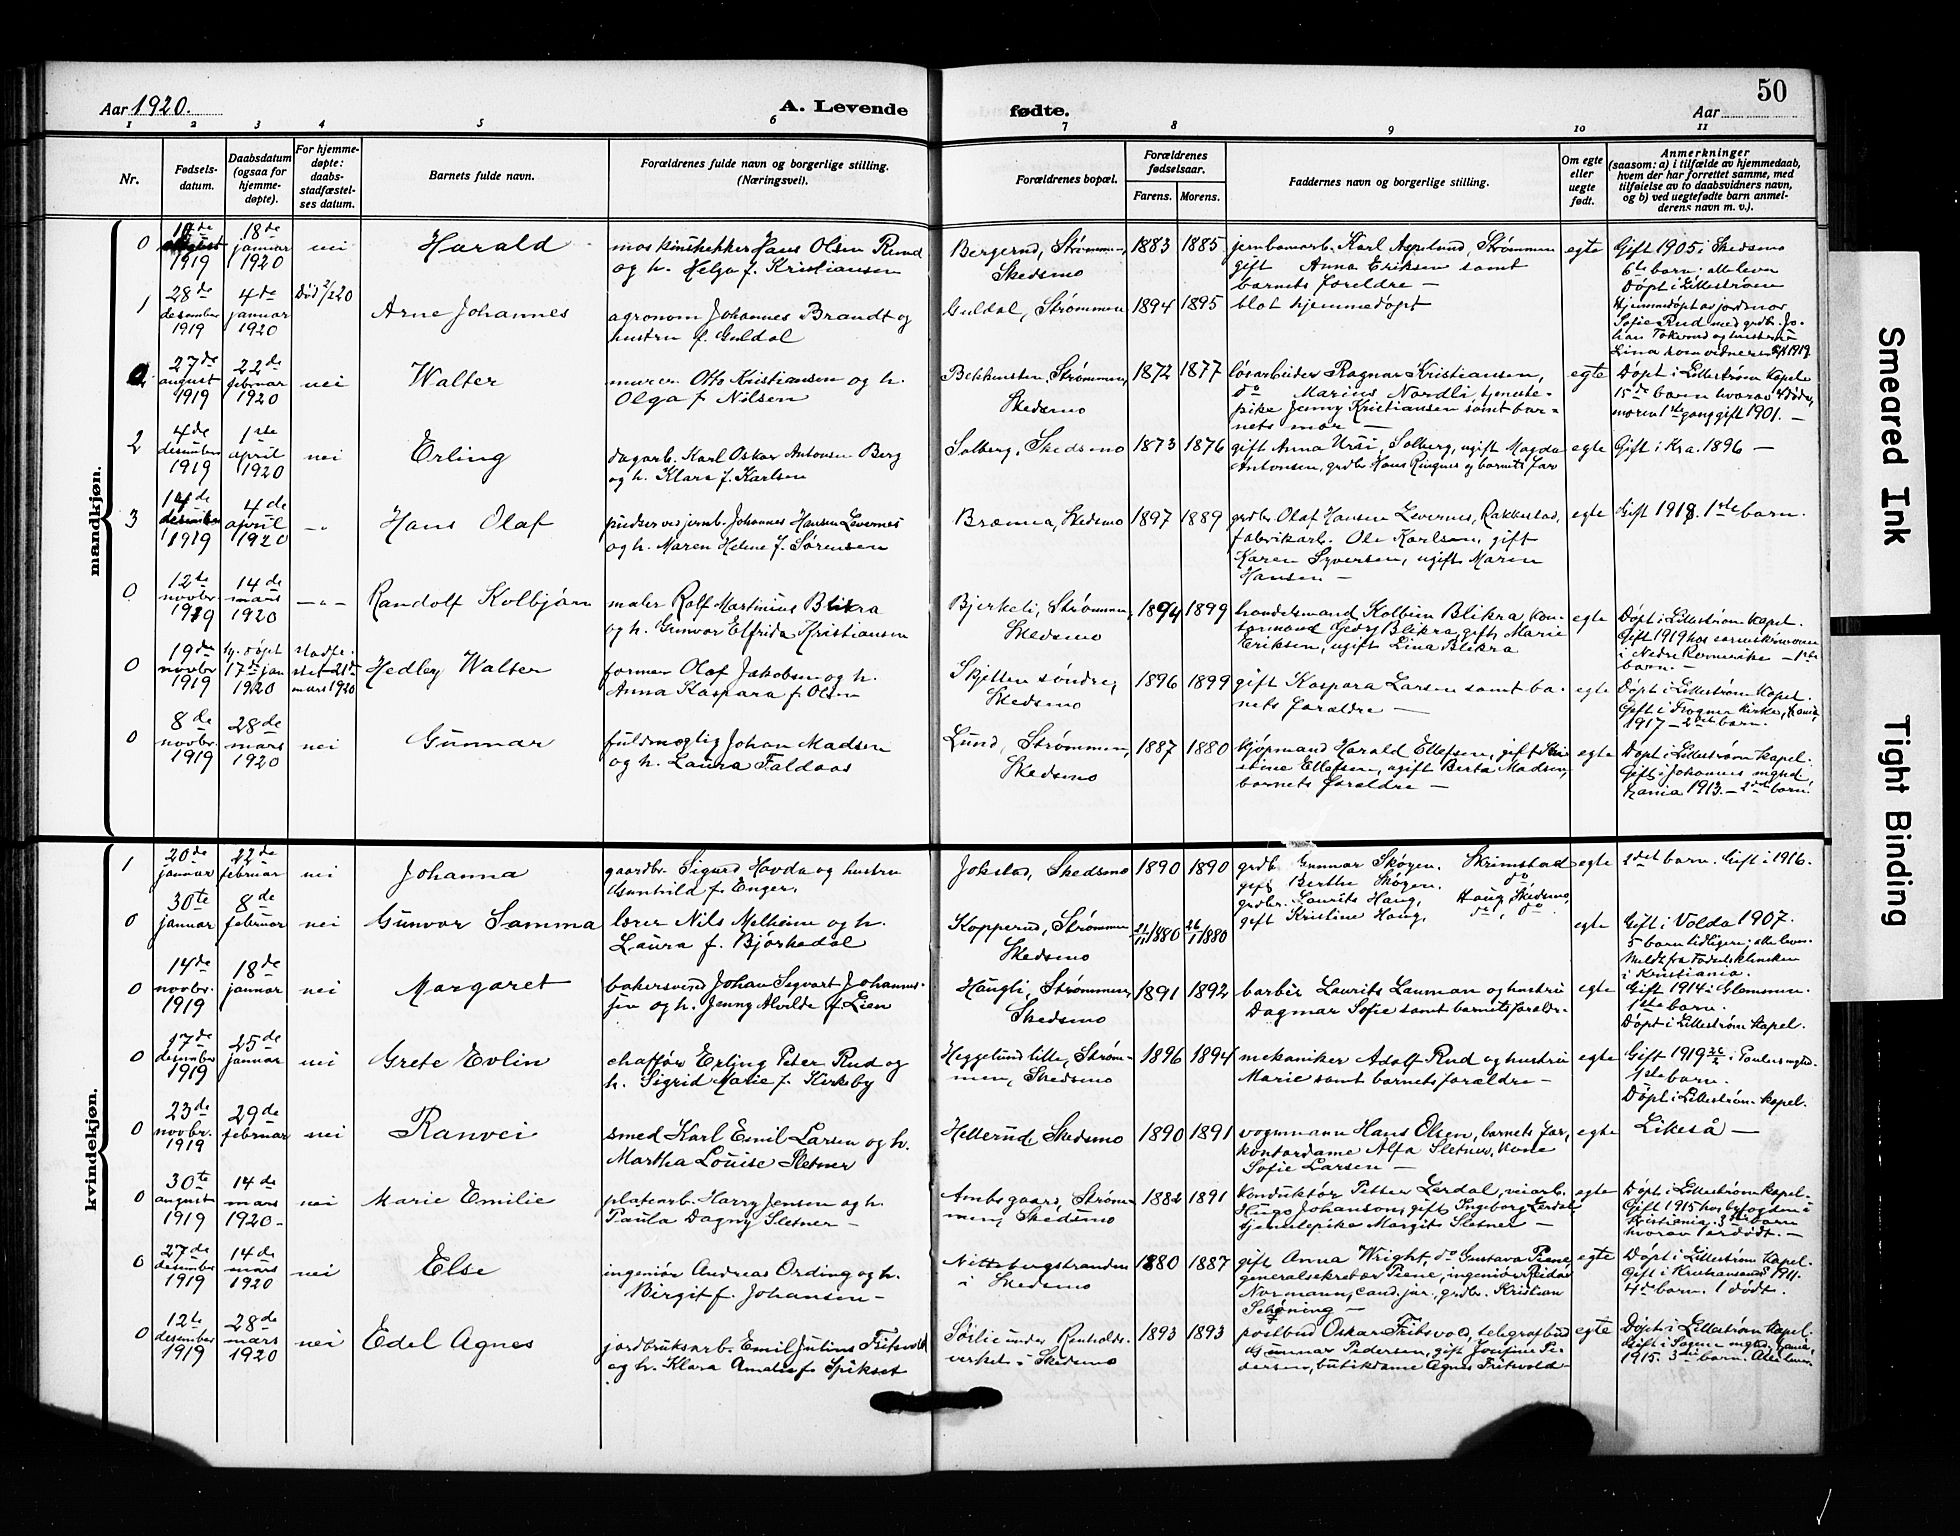 50
Aar 1920.
A. Levende
fødte.
Aar
1 2 3 4 5 6 7 8 9 10 11
Nr.
Fødsels-
datum.
Daabsdatum
(ogsaa for
hjemme-
døpte).
For hjemme-
døpte:
daabs-
stadfæstel-
ses datum.
Barnets fulde navn.
Forældrenes fulde navn og borgerlige stilling.
(Næringsvei).
Forældrenes bopæl.
Forældrenes
fødselsaar.
Farens. Morens.
Faddernes navn og borgerlige stilling.
Om egte
eller
uegte
født.
Anmerkninger
(saasom: a) i tilfælde av hjemmedaab,
hvem der har forrettet samme, med
tilføielse av to daabsvidners navn,
og b) ved uegtefødte barn anmel-
derens navn m. v.).
mandkjøn.
0 1919 18de januar 1920 nei Harald
Hans Olsen Rund
og h. Helga f. Kristiansen
Bergerud, Strømmen,
Skedsmo
1883 1885
jernbanearb. Karl Aspelund, Strømmen
gift Anna Eriksen samt
barnets foreldre –
egte
Gift 1905 i Skedsmo
6te barn; alle lever
Døpt i Lillestrøm
1 28de desember 1919 4de januar 1920 Død 2/1 20 Arne Johannes
agronom Johannes Brandt og
hustru f. Guldal
Guldal, Strømmen
1894 1895
blot hjemmedøpt
Hjemmedøpt av jordmor
Sofie Rud med grdbr. Jo-
han
Lina som vidner
27de august 1919 22de februar 1920 nei Walter
murer Otto Kristiansen og h.
Olga f. Nilsen
Strømmen,
Skedsmo
1872 1877
løsarbeider Ragnar Kristiansen,
do Marius Nordli, tjeneste-
pike Jenny Kristiansen samt bar-
nets mor –
egte
Døpt i Lillestrøm Kapel
15de barn hvorav 4 døde,
moren 1ste gang gift 1901. –
2 4de desember 1919 1ste april 1920 nei Erling
dagarb. Karl Oskar Antonsen Berg
og h. Klara f. Karlsen
Solberg, Skedsmo
1873 1876
gift Anna Solberg, ugift Magda
Antonsen, grdbr. Hans Ringnes og barnets far
egte
Gift i Kra. 1896 –
3 14de desember 1919 4de april 1920 –"– Hans Olaf
pudser ved jernb. Johannes Hansen Levernes
og h. Maren Helene f. Sørensen
Brænna, Skedsmo
1897 1889
grdbr. Olaf Hansen Levernes, Rakkestad,
fabrikarb. Ole Karlsen, gift
Karen Syversen, ugift Maren
Hansen –
egte
Gift 1918. 1ste barn.
0 12te novbr. 1919 14de mars 1920 –"– Randolf Kolbjørn
maler Rolf Martinius Blikra
og h. Gunvor Elfrida Kristiansen
Bjerkeli, Strømmen,
Skedsmo
1894 1899
handelsmand Kolbein Blikra, kon-
tormand Georg Blikra, gift Marie
Eriksen, ugift Lina Blikra
egte
Døpt i Lillestrøm Kapel.
Gift 1919 hos sorenskriveren
i Nedre Romerike – 1ste
barn. –
0 19de novbr 1919 hj. døpt 17de jan 1920 stadfe- stet 21de mars 1920 Hedley Walter
former Olaf Jakobsen og h.
Anna Kaspara f. Olsen
Skjetten søndre,
Skedsmo
1896 1899
gift Kaspara Larsen samt ba-
nets foreldre –
egte
Døpt i Lillestrøm Kapel.
Gift i Frogner Kirke, Krania,
1917 – 2det barn.
0 8de novbr. 1919 28de mars 1920 nei Gunnar
fuldmægtig Johan Madsen
og h. Laura Faldaas
Lund, Strømmen,
Skedsmo
1887 1880
kjøpmand Harald Ellefsen, gift Kri-
stine Ellefsen, ugift Berta Madsen,
barnets foreldre –
egte
Døpt i Lillestrøm Kapel.
Gift i Johannes mghed,
Krania 1913. – 2det barn.
kvindekjøn.
1 20de januar 22de februar nei Johanna
gaardbr. Sigurd Hovda og hustru
Gunhild f. Enger.
Jokstad, Skedsmo
1890 1890
grdb. Gunnar Skøyen. Skrimstad
gift Berthe Skøyen. do
grdbr. Laurits Haug, Haug, Skedsmo,
gift Kristine Haug, do, do
egte
2det barn. Gift i 1916.
0 30te januar 8de februar nei Gunvor Samma
lærer Nils Melheim og h.
Laura f. Bjørkedal
Kopperud, Strømmen
Skedsmo
1880 1880
egte
Gift i Volda 1907.
5 barn tidligere; alle lever.
Meldt fra Fødselsklinikken
i Kristiania.
0 14de novbr. 1919 18de januar nei Margaret
bakersvend Johan Sigvart Johannes-
sen og h. Jenny Alvilde f. Lien
Haugli, Strømmen,
Skedsmo
1891 1892
barber Laurits Lauman og hustru
Dagmar Sofie samt barnets foreldr-
egte
Gift 1914 i Glemmen.
1ste barn.
Døpt i Lillestrøm Kapel.
0 17de desember 1919 25de januar nei Grete Evlin
chaffør Erling Peter Rud og
h. Sigrid Marie f. Kirkeby
Heggelund lille, Strøm-
men, Skedsmo
1896 1894
mekaniker Adolf Rud og hustru
Marie samt barnets foreldre –
egte
Gift 1919 i Paulus mghed.
1ste barn.
Døpt i Lillestrøm Kapel.
0 23de novbr. 1919 29de februar nei Ranvei
smed Karl Emil Larsen og h.
Martha Louise Sletner
Hellerud, Skedsmo
1890 1891
vognmann Hans Olsen, barnets far,
kontordame Alfa Sletner, Kone
Sofie Larsen –
egte
Likeså –
0 30te august 1919 14de mars 1920 – nei Marie Emilie
platearb. Harry Jensen og h.
Paula Dagny Sletner –
Ambsgaard, Strøm-
men, Skedsmo
1882 1891
konduktør Petter Lerdal, veiarb.
Hugo Johanson, gift Ingeborg Lerdal
tjenestepike Margit Sletner –
egte
Døpt i Lillestrøm Kapel.
Gift 1915 hos byfogden i
Kristiania, 3die barn
hvorav 1 er dødt. –
0 27de desember 1919 14de mars 1920 nei Else
ingeniør Andreas Ording og h.
Birgit f. Johansen –
Nittebergstranden
i Skedsmo
1880 1887
gift Anna Wright, do Gustava Piene,
generalsekretær Piene, ingeniør Reidar
Normann, cand. jur., grdbr. Kristian
Schøning –
egte
Døpt i Lillestrøm Kapel.
Gift i Kristiansund 1911.
4de barn. 1 dødt.
0 12te desember 1919 28de mars 1920 nei Edel Agnes
jordbruksarb. Emil Julius Fritsvold
og h. Klara Amalie f. Spikset
Sørlie under Renholds-
verket i Skedsmo
1893 1893
postbud Oskar Fritsvold, telegrafbud
Gunnar Pedersen, gift Josefine Pe-
dersen, butikdame Agnes Fritsvold –
egte
Døpt i Lillestrøm Kapel.
Gift i Sagene mghed, Krania,
1915. 3die barn. Alle lever.
Smeared Ink
Tight Binding